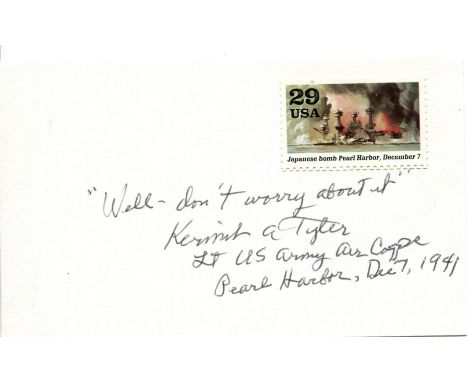 29
USA
Japanese bomb Pearl Harbor, December 7
"Well - don't worry about it"
Kermit A Tyler
Lt US Army Air Corps
Pearl Harbor, Dec 7, 1941